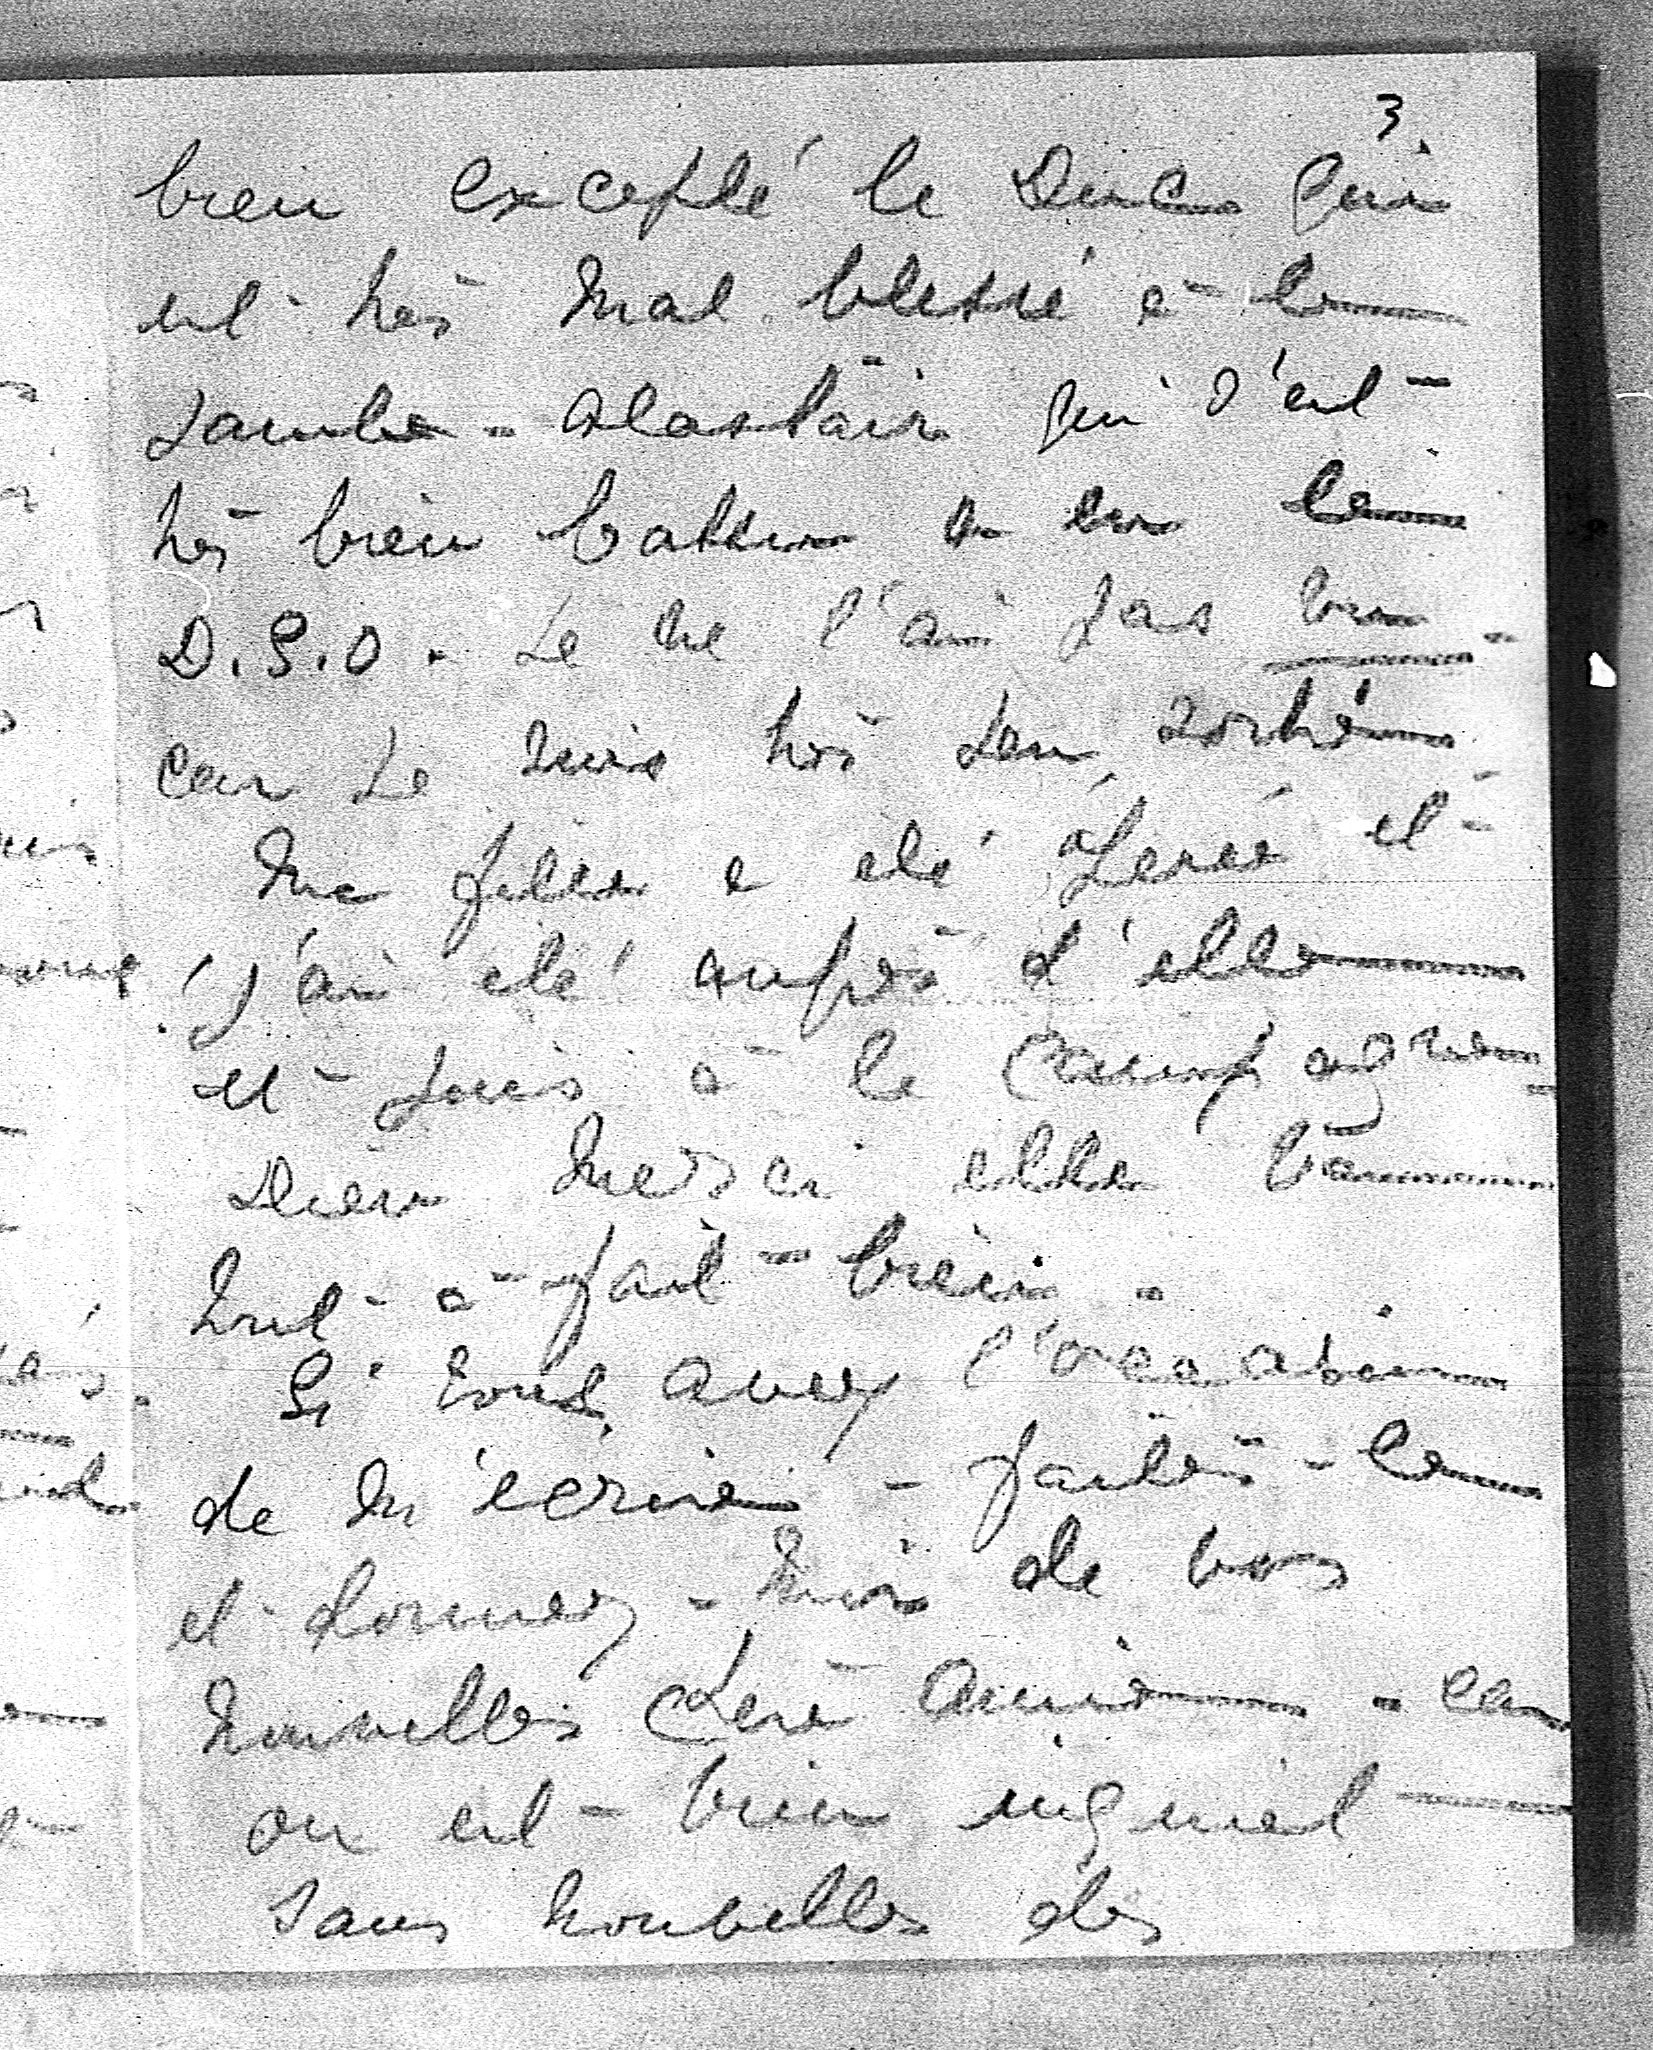 3
bien excepté le Duc qui
est très mal blessé à la
jambe - Alastair qui s'est
très bien battu a eu le
D.S.O. Je ne l'ai pas vu -
car je suis très peu sortie
Ma fille a été opérée et
j'ai été auprès d'elle
et puis à la campagne -
Dieu merci elle va
tout à fait bien -
Si vous avez l'occasion
de m'écrire - faites-le
et donnez-moi de vos
nouvelles chère amie - car
on est bien inquiet
sans nouvelles des